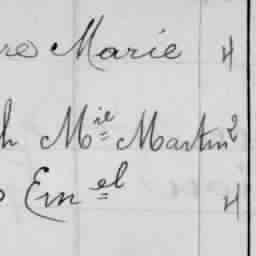 re Marie 4
h Mie Martin 2
Emel 4